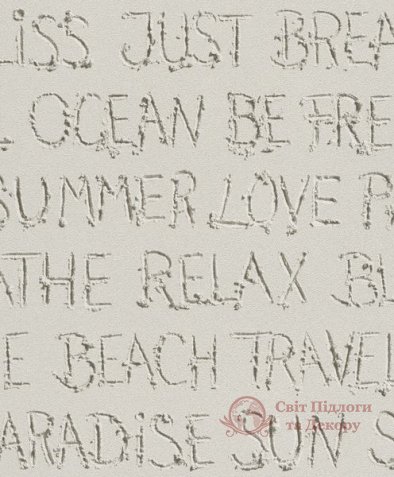 LiSS JUST BREA
L OCEAN BE FRE
SUMMER LOVE P
ATHE RELAX BL
E BEACH TRAVEL
ARADiSE SUN S
Світ Підлоги
та Декору